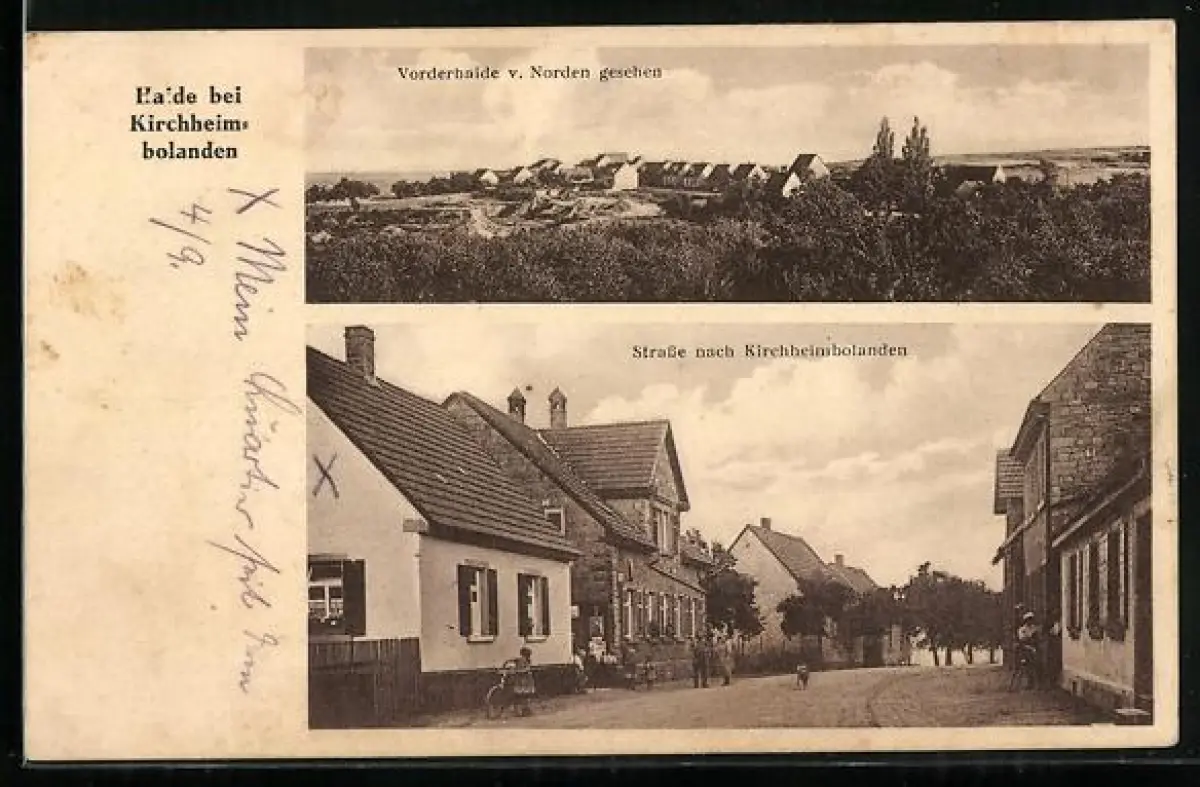 Haide bei
Kirchheim=
bolanden
Vorderhaide v. Norden gesehen
Straße nach Kirchheimbolanden
X Mein Quartier
4/9.
X